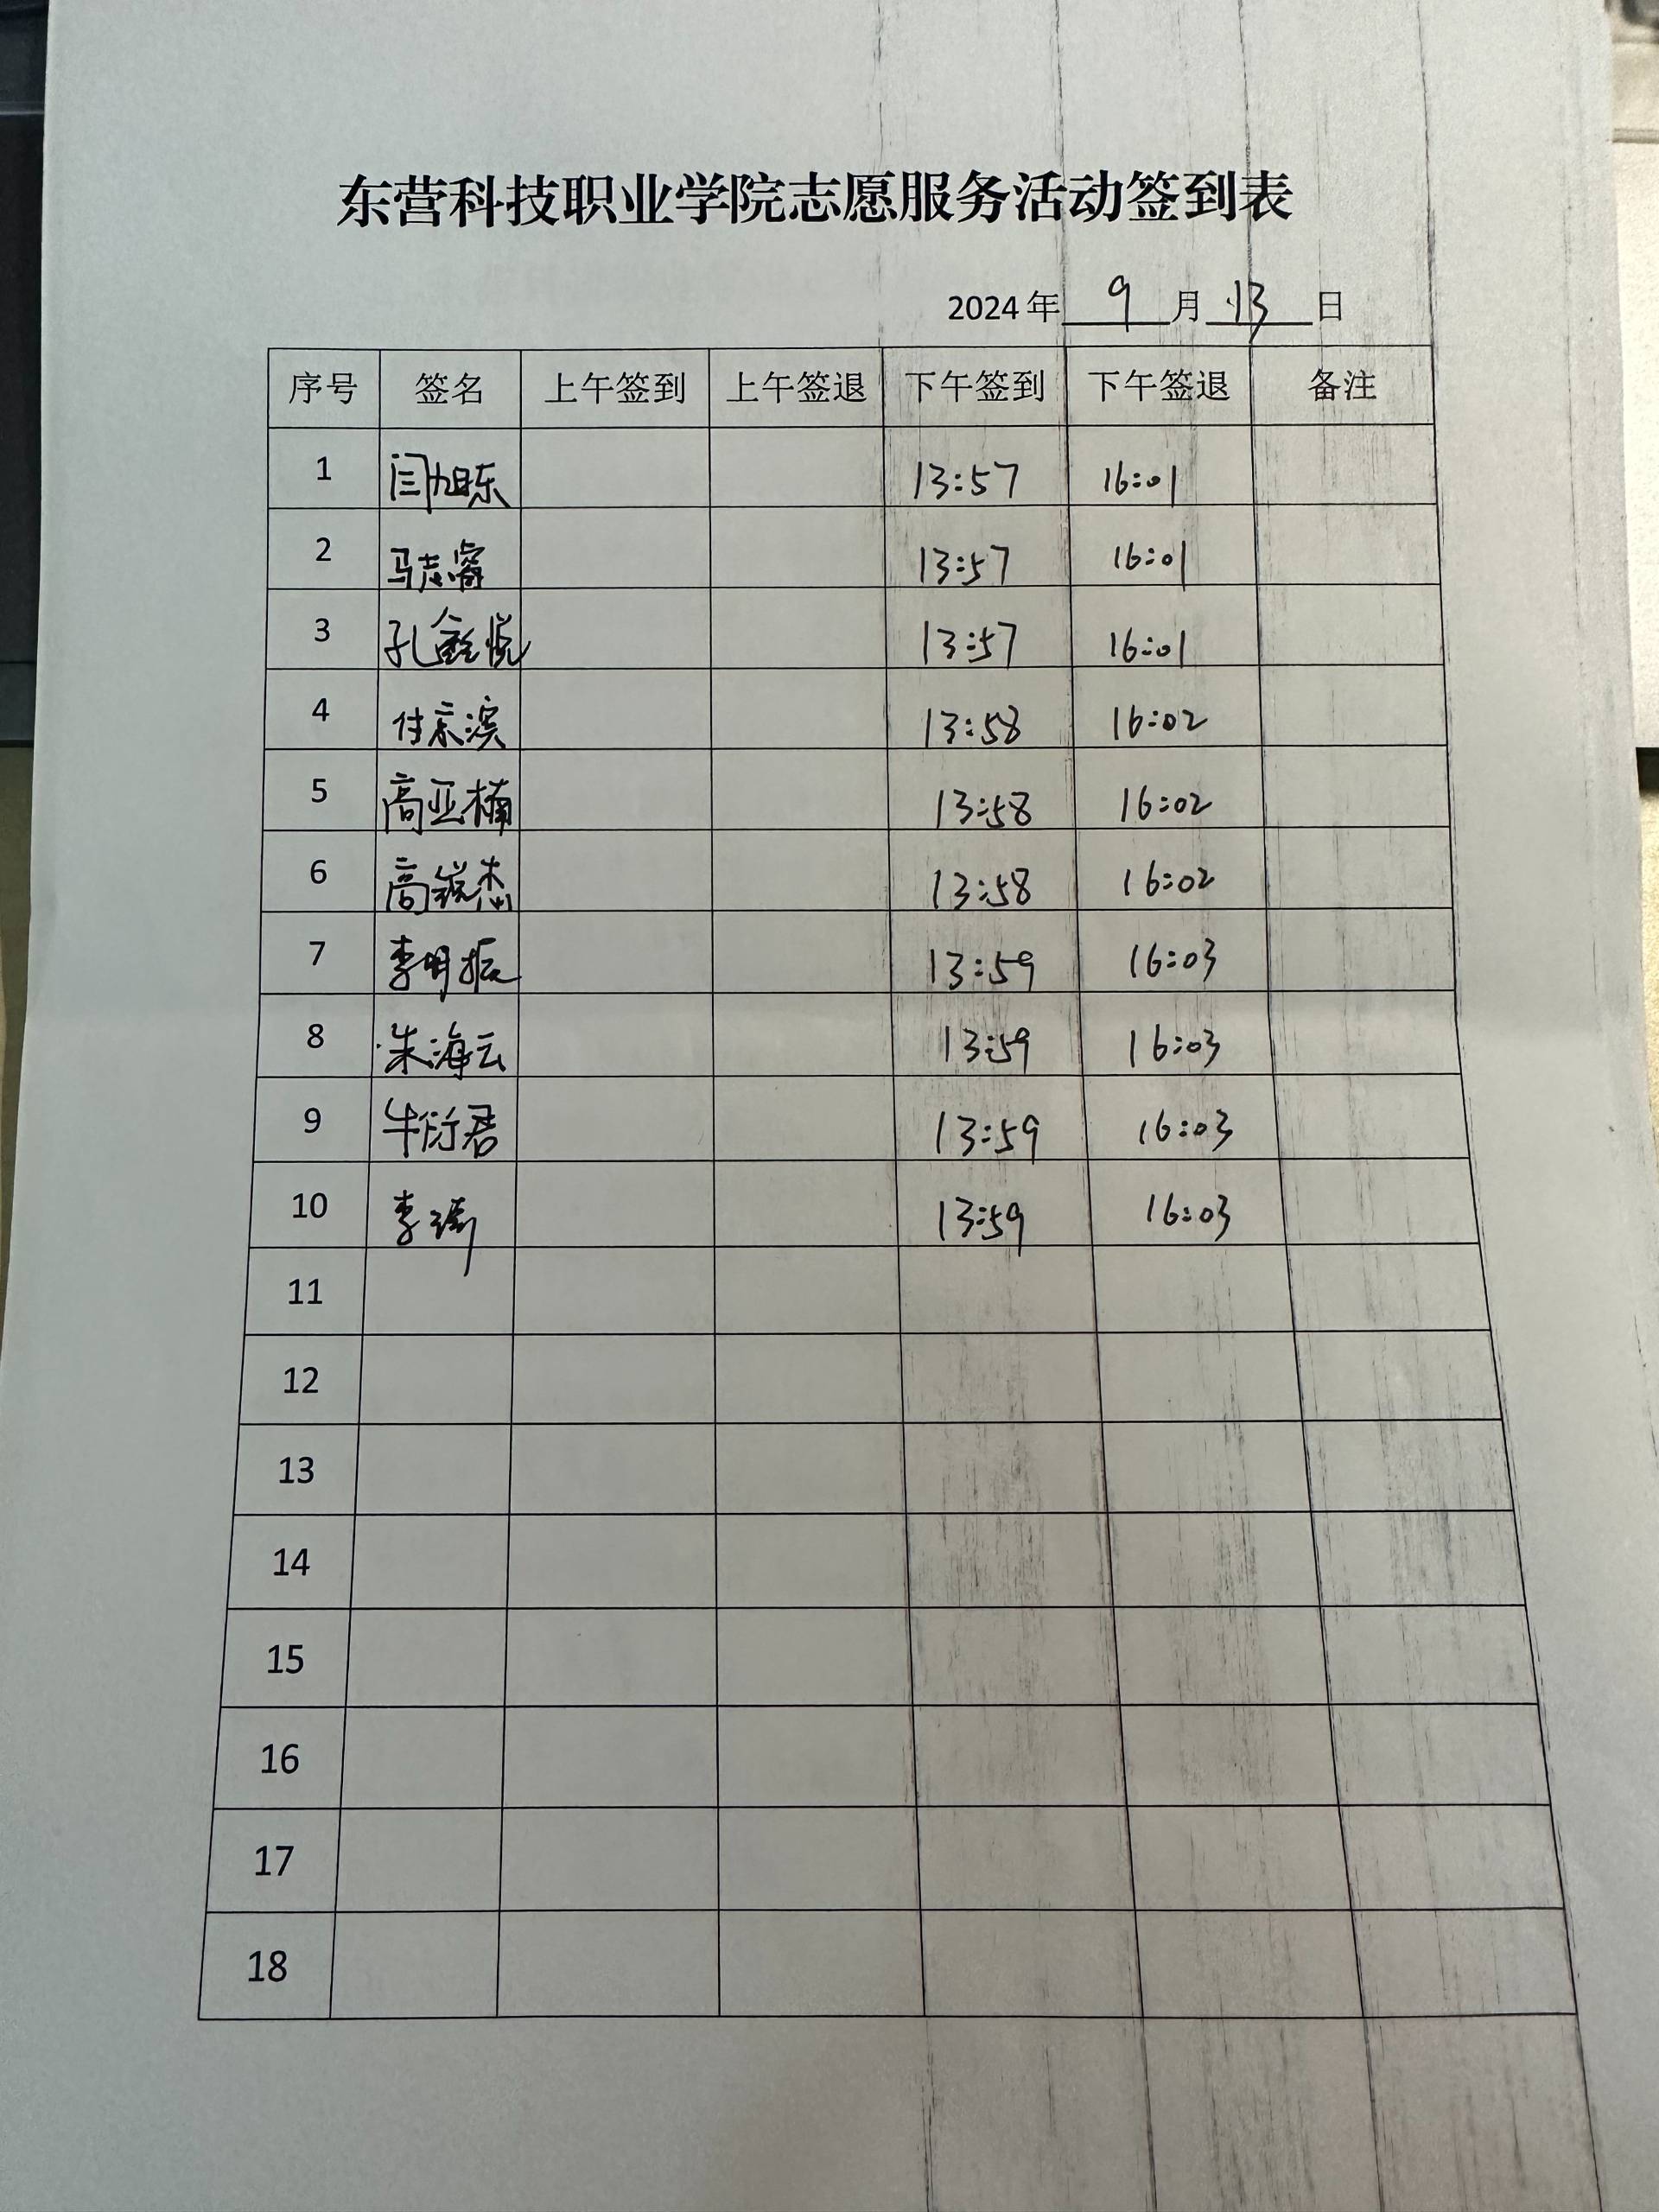 东营科技职业学院志愿服务活动签到表
2024年 9 月 13 日
序号 签名 上午签到 上午签退 下午签到 下午签退 备注
1 闫旭东 13:57 16:01
2 马志睿 13:57 16:01
3 孔鑫悦 13:57 16:01
4 付宗滨 13:58 16:02
5 高亚楠 13:58 16:02
6 高锐杰 13:58 16:02
7 李明振 13:59 16:03
8 朱海云 13:59 16:03
9 牛衍君 13:59 16:03
10 李 13:59 16:03
11
12
13
14
15
16
17
18